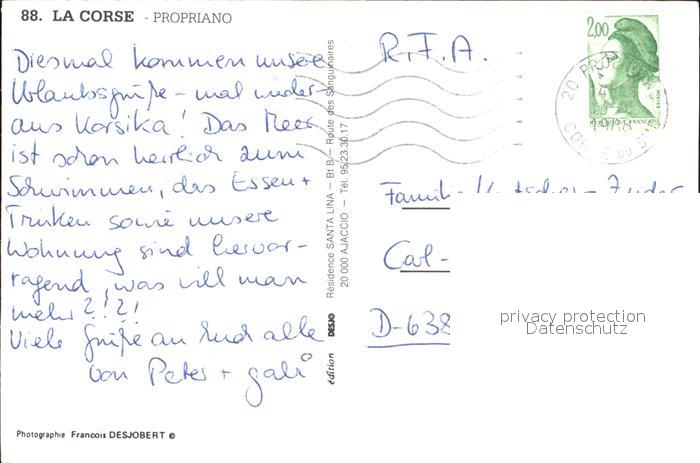 88. LA CORSE - PROPRIANO
Diesmal kommen unsere
Urlaubsgrüße - mal wieder -
aus Korsika! Das Meer
ist schon herrlich zum
Schwimmen, das Essen +
Trinken sowie unsere
Wohnung sind hervor-
ragend, was will man
mehr?!?!
Viele Grüße an Euch alle
von Peter + Gabi
Photographie Francois DESJOBERT ©
édition DESJO
Résidence SANTA LINA — Bt B — Route des Sanguinaires
20 000 AJACCIO — Tél. 95/23.30.17
R.F.A.
2,00
RÉPUBLIQUE FRANÇAISE
20 PROPRIANO
CORSE DU SUD
Familie
Carl-
D-638
privacy protection
Datenschutz